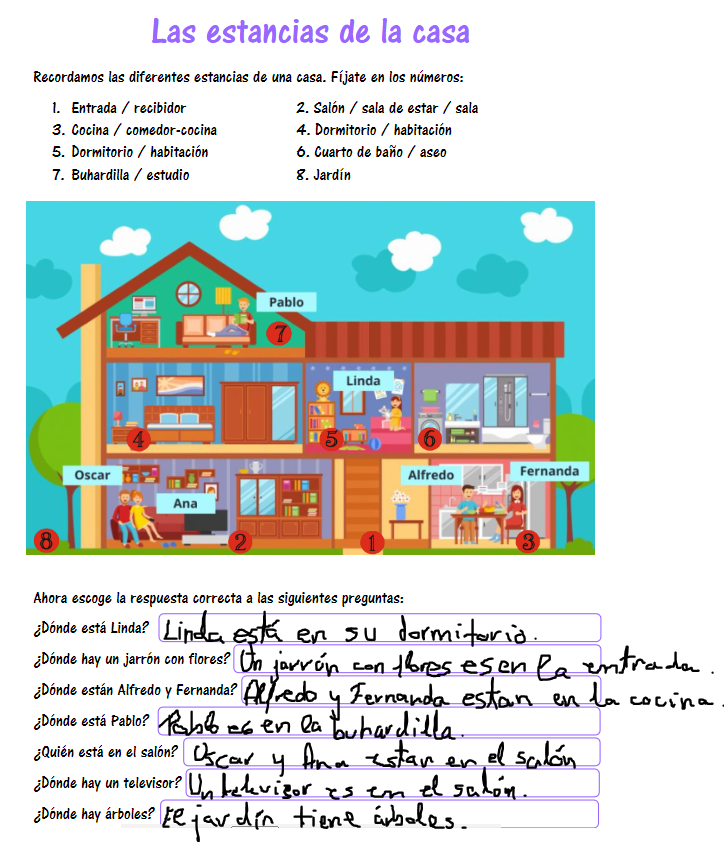 Las estancias de la casa
Recordamos las diferentes estancias de una casa. Fíjate en los números:
1. Entrada / recibidor
2. Salón / sala de estar / sala
3. Cocina / comedor-cocina
4. Dormitorio / habitación
5. Dormitorio / habitación
6. Cuarto de baño / aseo
7. Buhardilla / estudio
8. Jardín
Pablo
7
Linda
4
5
6
Oscar
Alfredo
Fernanda
Ana
8
2
1
3
Ahora escoge la respuesta correcta a las siguientes preguntas:
¿Dónde está Linda? Linda está en su dormitorio.
¿Dónde hay un jarrón con flores? Un jarrón con flores es en la entrada.
¿Dónde están Alfredo y Fernanda? Alfredo y Fernanda estan en la cocina.
¿Dónde está Pablo? Pablo es en la buhardilla.
¿Quién está en el salón? Oscar y Ana estan en el salón
¿Dónde hay un televisor? Un televisor es en el salón.
¿Dónde hay árboles? El jardín tiene árboles.